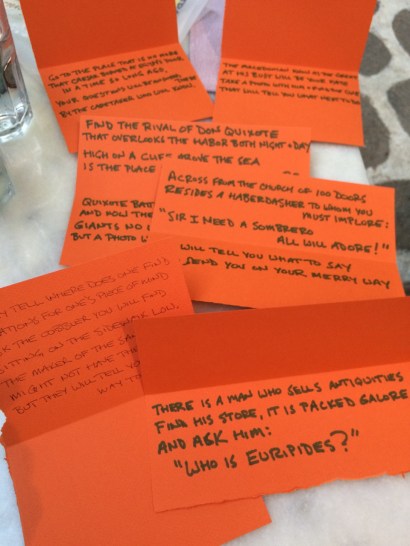 GO TO THE PLACE THAT IS NO MORE
THAT CAESAR BURNED
IN A TIME SO LONG AGO.
YOUR QUESTIONS WILL BE
BY THE CARETAKER WHO WILL KNOW.
THE MACEDONIAN KNOWN AS THE GREAT
AT HIS BUST WILL BE YOUR FATE
TAKE A PHOTO WITH HIM + FIND THE CLUE
THAT WILL TELL YOU WHAT NEXT TO DO
FIND THE RIVAL OF DON QUIXOTE
THAT OVERLOOKS THE HABOR BOTH NIGHT + DAY
HIGH ON A CLIFF ABOVE THE SEA
IS THE PLACE
QUIXOTE BATT
AND NOW THE
GIANTS NO
BUT A PHOTO W
ACROSS FROM THE CHURCH OF 100 DOORS
RESIDES A HABERDASHER TO WHOM YOU
MUST IMPLORE:
"SIR I NEED A SOMBRERO
ALL WILL ADORE!"
WILL TELL YOU WHAT TO SAY
SEND YOU ON YOUR MERRY WAY
TELL WHERE DOES ONE FIND
FOR ONE'S PIECE OF MIND
THE COBBLER YOU WILL FIND
SITTING ON THE SIDEWALK LOW.
THE MAKER OF THE SA
MIGHT NOT HAVE TH
BUT THEY WILL TELL YO
WAY T
THERE IS A MAN WHO SELLS ANTIQUITIES
FIND HIS STORE, IT IS PACKED GALORE
AND ASK HIM:
"WHO IS EURIPIDES?"